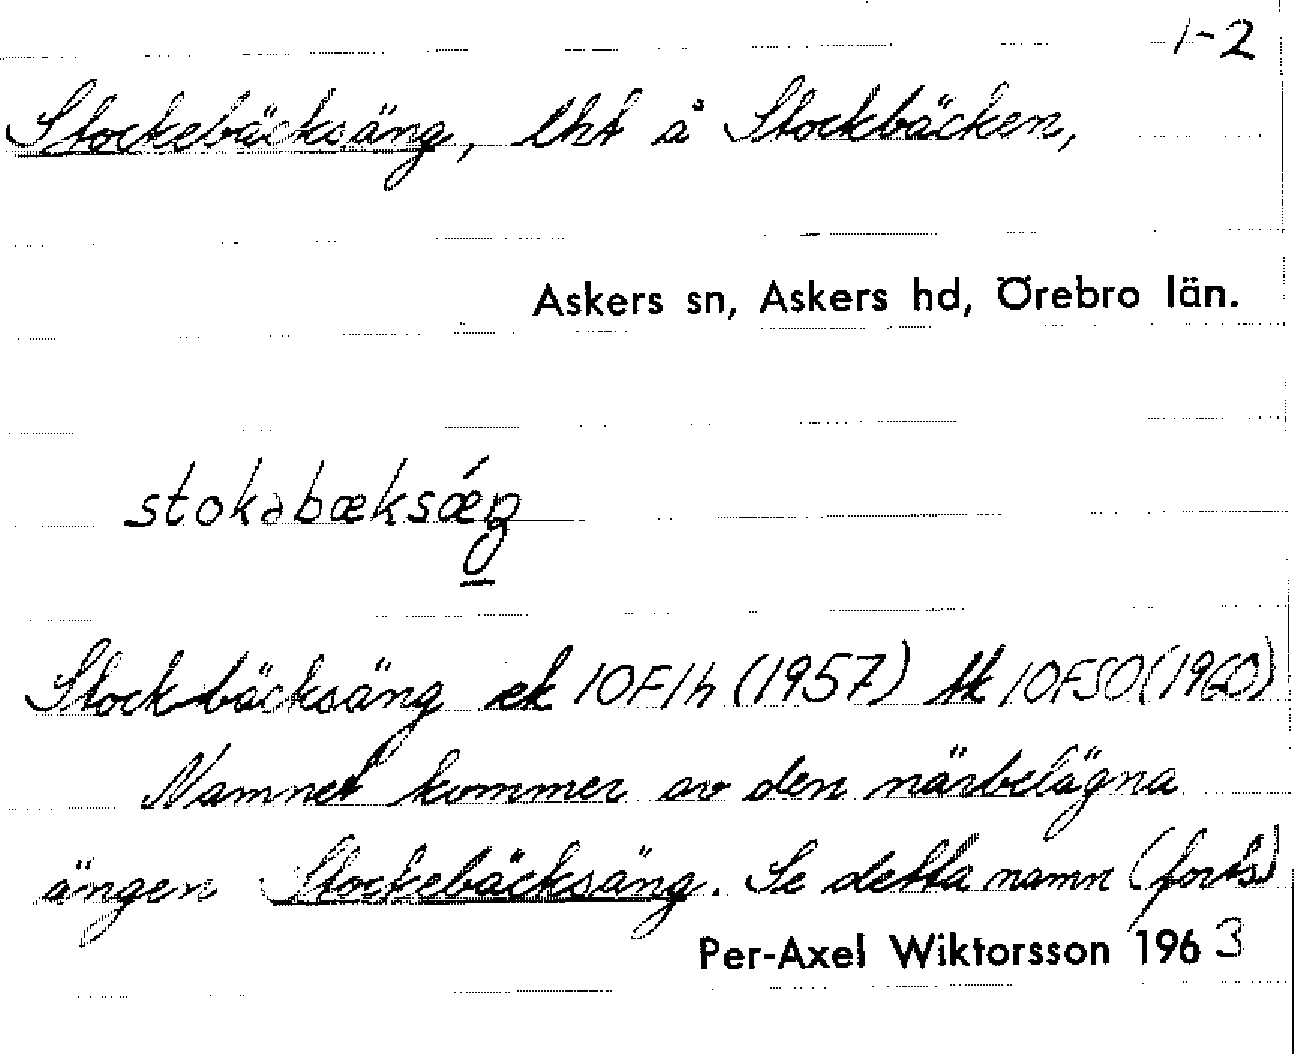 1-2
Stockebäcksäng, lht å Stockbäcken,
Askers sn, Askers hd, Örebro län.
stokəbæksǽŋ
Stockbäcksäng ek 10F1h (1957) tk 10FSO (1960)
Namnet kommer av den närbelägna
ängen Stockebäcksäng. Se detta namn (forts)
Per-Axel Wiktorsson 1963